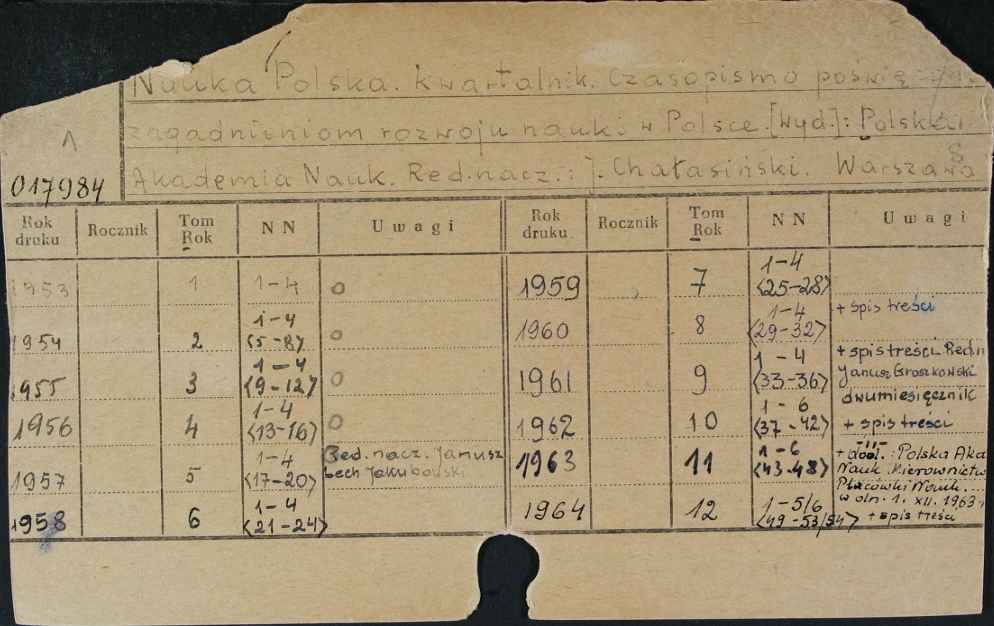 Nauka Polska. Kwartalnik. Czasopismo poświę
zagadnieniom rozwoju nauki w Polsce. [Wyd.]: Polska
Akademia Nauk. Red. nacz.: J. Chałasiński. Warszawa
A
017984
Rok druku Rocznik Tom Rok NN Uwagi Rok druku Rocznik Tom Rok NN Uwagi
1953 1 1-4 0
1954 2 1-4 <5-8> 0
1955 3 1-4 <9-12> 0
1956 4 1-4 <13-16> 0
1957 5 1-4 <17-20> Red. nacz. Janusz Lech Jakubowski
1958 6 1-4 <21-24>
1959 7 1-4 <25-28>
1960 8 1-4 <29-32> + spis treści
1961 9 1-4 <33-36> + spis treści Red. n Janusz Groszkowski
1962 10 1-6 <37-42> dwumiesięcznik + spis treści
1963 11 1-6 <43-48> -"- + dod.: Polska Aka Nauk. Kierownictwo Placówki Nauk... w dn. 1. XII. 1963 r
1964 12 1-5/6 <49-53/54> + spis treści